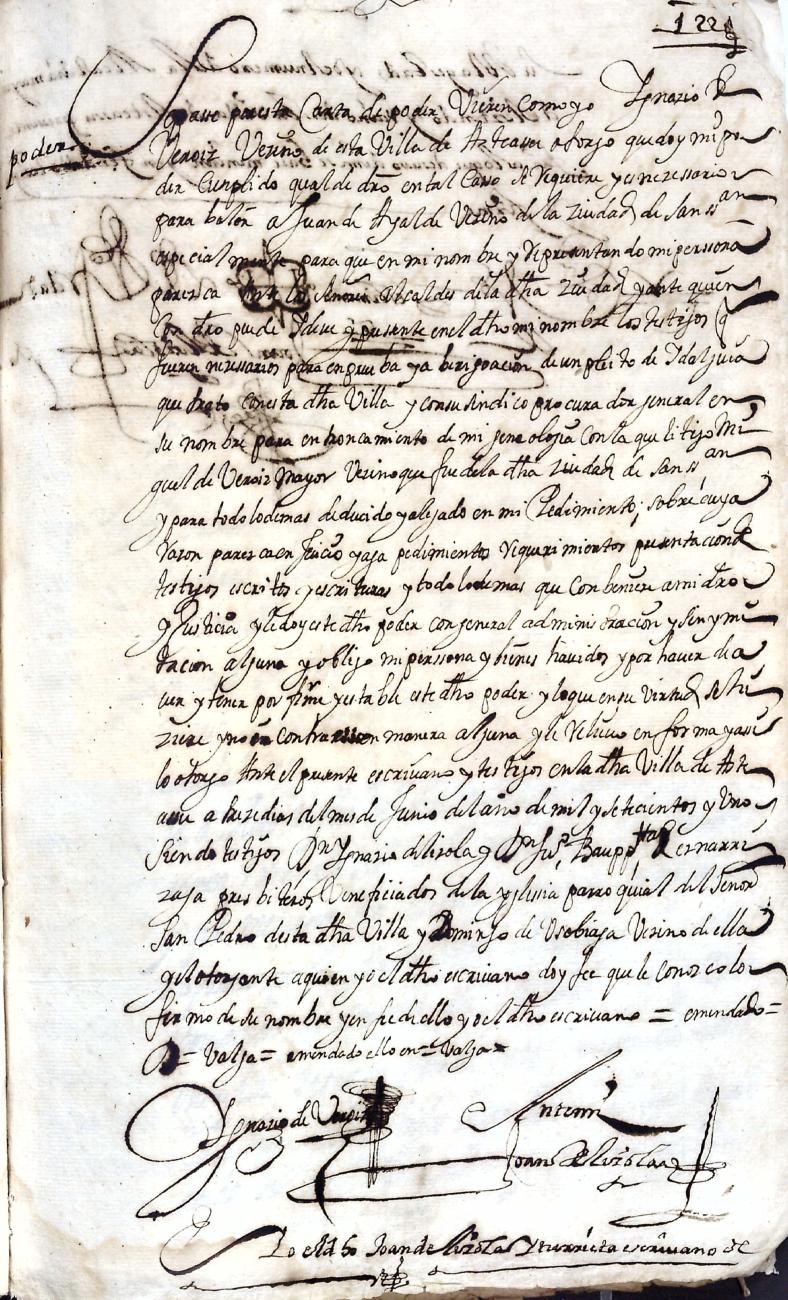 122
poder
Sepase por esta Carta de poder Vieren Como yo Ignacio de
Veroiz Vezino de esta Villa de Azteasu otorgo que doy mi po
der Cumplido qual de dro en tal Caso se requiere y es nezessario
para baler a Juan de Ayalde Vezino de la ziudad de San Ssan
especialmente para que en mi nombre y representando mi perssona
paresca Ante los Senores Alcaldes de la dha ziudad y ante quien
Con dro puede y deve y presente en el dho mi nombre los testigos q
fueren nezessarios para en prueba y aberiguacion de un pleito de Ydalguia
que trato con esta dha Villa y con su sindico procurador general en
su nombre para entroncamiento de mi genealogia Con la que litigo Mi
guel de Veroiz Mayor Vezino que fue de la dha ziudad de San Ssan
y para todo lo demas deducido y alegado en mi Pedimiento sobre cuya
Razon paresca en Juicio y aga pedimientos requirimientos presentacion de
testigos escritos y escrituras y todo lo demas que Conbeniere a mi dro
y Justicia y le doy este dho poder con general administracion y sin limi
tacion alguna y obligo mi perssona y bienes havidos y por haver de a
ver y tener por firme y estable este dho poder y lo que en su virtud se hi
ziere y no en Contra en manera alguna y le relievo en forma y assi
lo otorgo Ante el presente escrivano y testigos en la dha Villa de Azte
asu a tres dias del mes de Junio del año de mil y setecientos y Uno
Siendo testigos Dn Ignacio de lizola y Dn Jun Baupptta de ernarri
zaga presbiteros Veneficiados de la yglesia parroquial del Senor
San Pedro desta dha Villa y Domingo de Usobiaga Vezino de ella
y el otorgante a quien yo el dho escrivano doy fee que le Conozco lo
firmo de su nombre y en fee de ello yo el dho escrivano = emendado =
D = Valga = emendado ello en = Valga =
Ignazio de Veroiz Ante mi
Joan de Lizola
Yo el dho Joan de Lizola Yturrieta escrivano de